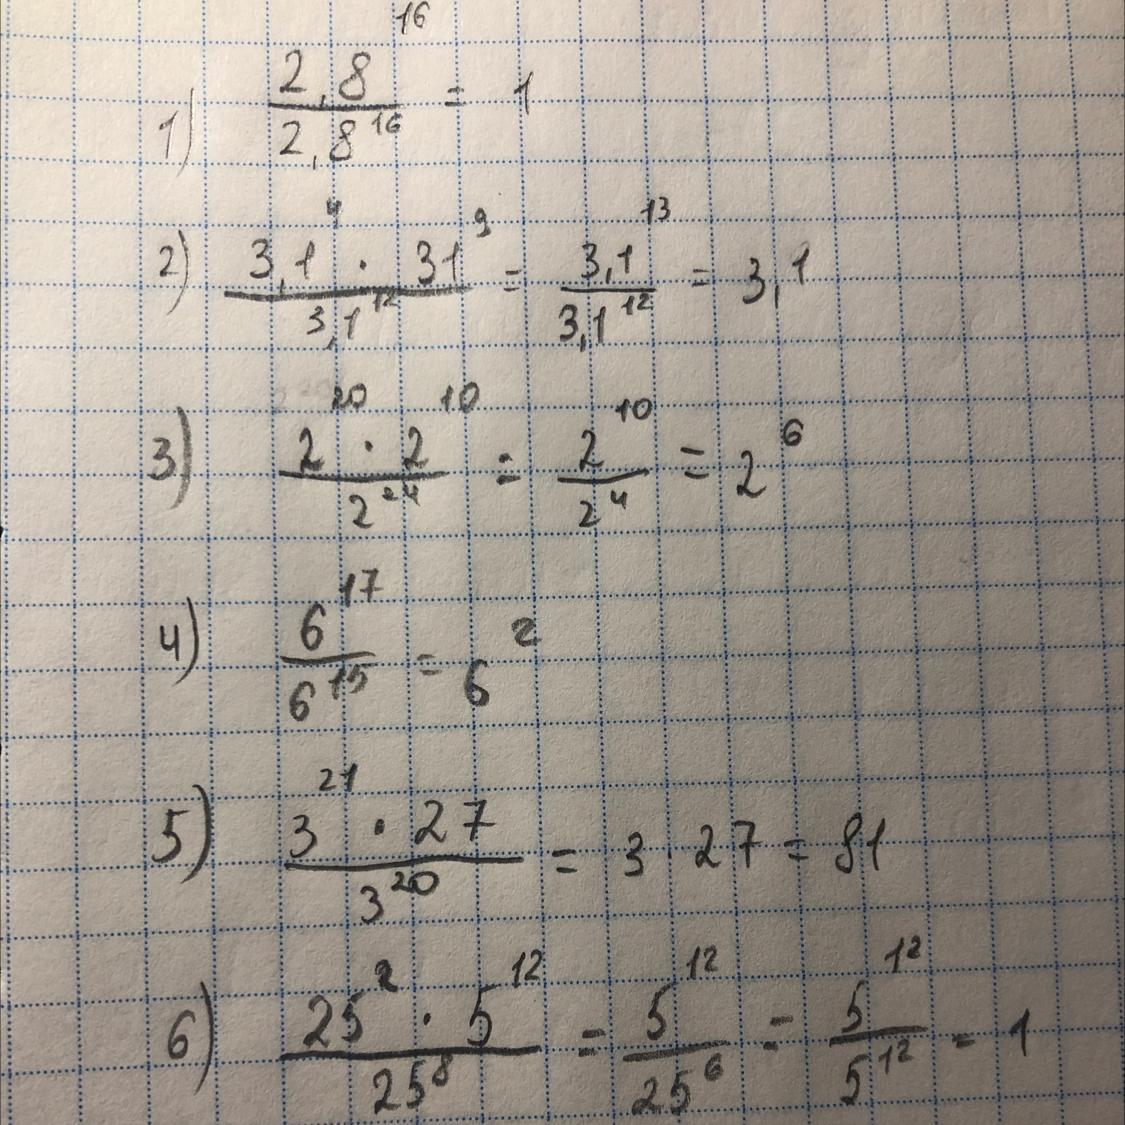 1) 2,8^16 / 2,8^16 = 1
2) 3,1^4 · 31^9 / 3,1^12 = 3,1^13 / 3,1^12 = 3,1
3) 2^20 · 2^10 / 2^24 = 2^10 / 2^4 = 2^6
4) 6^17 / 6^15 = 6^2
5) 3^21 · 27 / 3^20 = 3 · 27 = 81
6) 25^2 · 5^12 / 25^8 = 5^12 / 25^6 = 5^12 / 5^12 = 1